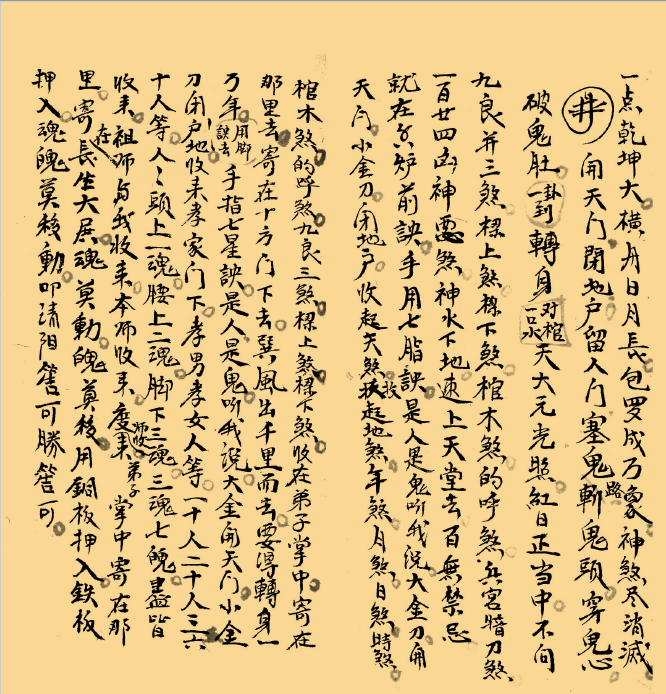 一点乾坤大横丹日月長包罗成万象神煞尽消滅
井 開天门閉地户留人门塞鬼路斬鬼頭穿鬼心
破鬼肚一卦到轉身对棺一口水天大元光照紅日正当中不问
九良并三煞樑上煞樑下煞棺木煞的呼煞兵宮暗刀煞
一百廿四凶神惡煞神水下地速上天堂去百無禁忌
就在炉前訣手用七脂訣是人是鬼听我說大金刀開
天门小金刀闭地户收起天煞收起地煞年煞月煞日煞時煞
棺木煞的呼煞九良三煞樑上煞樑下煞收在弟子掌中寄在
那里去寄在十方门下去巽風出千里而去要淂轉身一
万年用脚訣去手指七星訣是人是鬼听我說大金開天门小金
刀闭户地收来孝家门下孝男孝女人等一十人二十人三六
十人等人人頭上一魂腰上二魂脚下三魂三魂七魄盡皆
收来祖师与我收来本师收来度师收来弟子掌中寄在那
里寄在長生大居魂莫動魄莫移用銅板押入鉄板
押入魂魄莫移動叩請阳筶可勝筶可